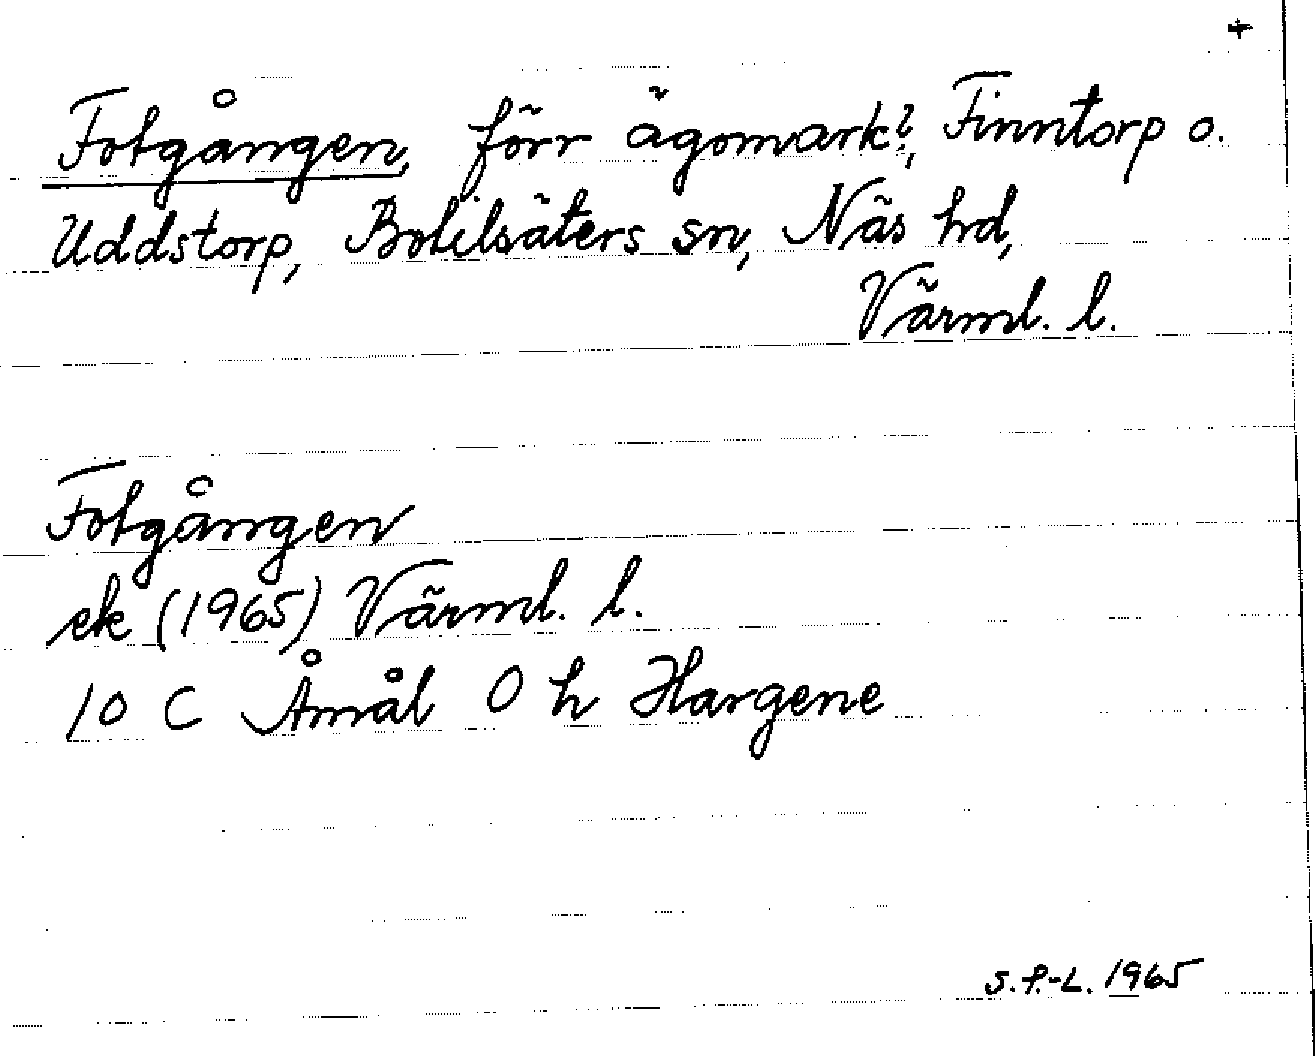 +
Fotgången, förr ägomark?, Finntorp o.
Uddstorp, Botilsäters sn, Näs hd,
Värml. l.
Fotgången
ek (1965) Värml. l.
10 C Åmål 0 h Hargene
S.F.-L. 1965